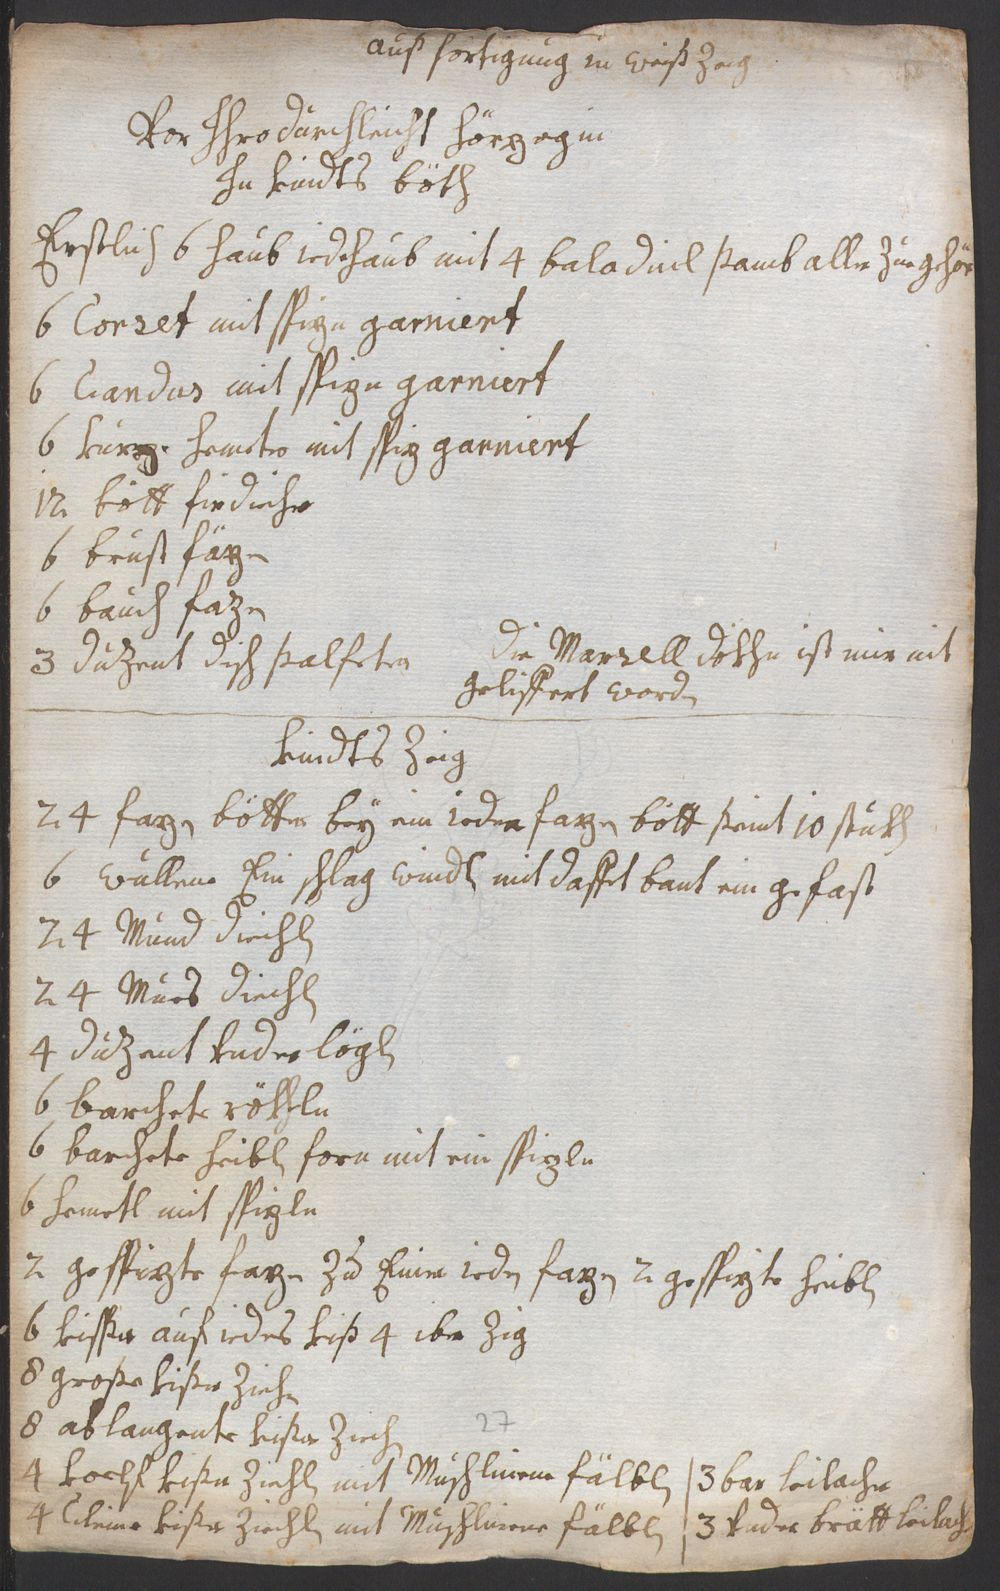 auß förtigung in weiß Zeig
Vor Ihro durchleicht Hörzogin
In kindts böth
Erstlich 6 haub iede haub mit 4 baladinl sambt aller Zuegehör
6 Corset mit spizn garniert
6 mit spizn garniert
6 kurze hemeter mit spiz garniert
12 bött firdicher
6 brust fäzn
6 bauch fazn
3 duzent disch salfeten
Die Marzell döckhn ist mir nit
geliffert wordn
kindts Zeig
24 fazn bötter bey ein ieden fazn bött seint 10 stukh
6 wullene Ein schlag windl mit daffet bant ein gefast
24 Mund diechl
24 Mues diechl
4 duzent
6 barchete rökheln
6 barchete heibl forn mit ein spizln
6 hemetl mit spizln
2 gespizte fazn Zu Einer iedn fazn 2 gespizte heibl
6 kisser auf iedes kiß 4 iber Zig
8 große kißer Ziehn
8 ablangente kißer Ziech
4 kißer Ziechl mit Mußhlinene fälbl
4 Cleine kißer Ziechl mit Mußhlinene fälbl
3 bar leilacher
3 leilach
27